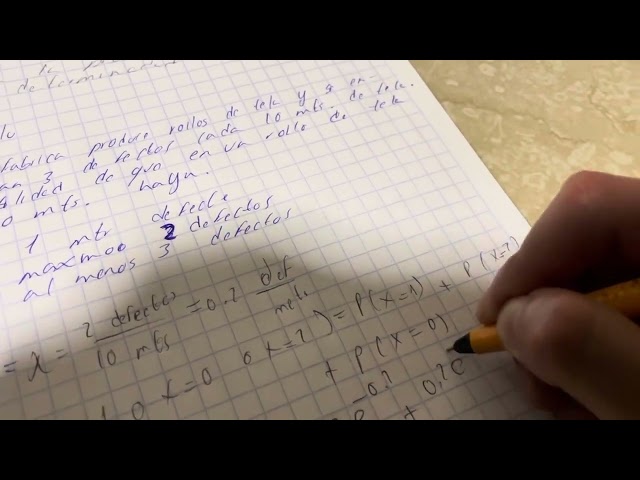 determinar
fabrica produce rollos de tela y se en-
an 3 defectos cada 10 mts. de tela.
ilidad de que en un rollo de tela
0 mts. haya.
1 mtr defecto
maxmoo 2 defectos
al menos 3 defectos
= λ = 2 defectos / 10 mts = 0.2 def / metr
1 o x=0 o x=2) = P(X=1) + P(X=2)
+ P(X=0)
+ 0.2 e